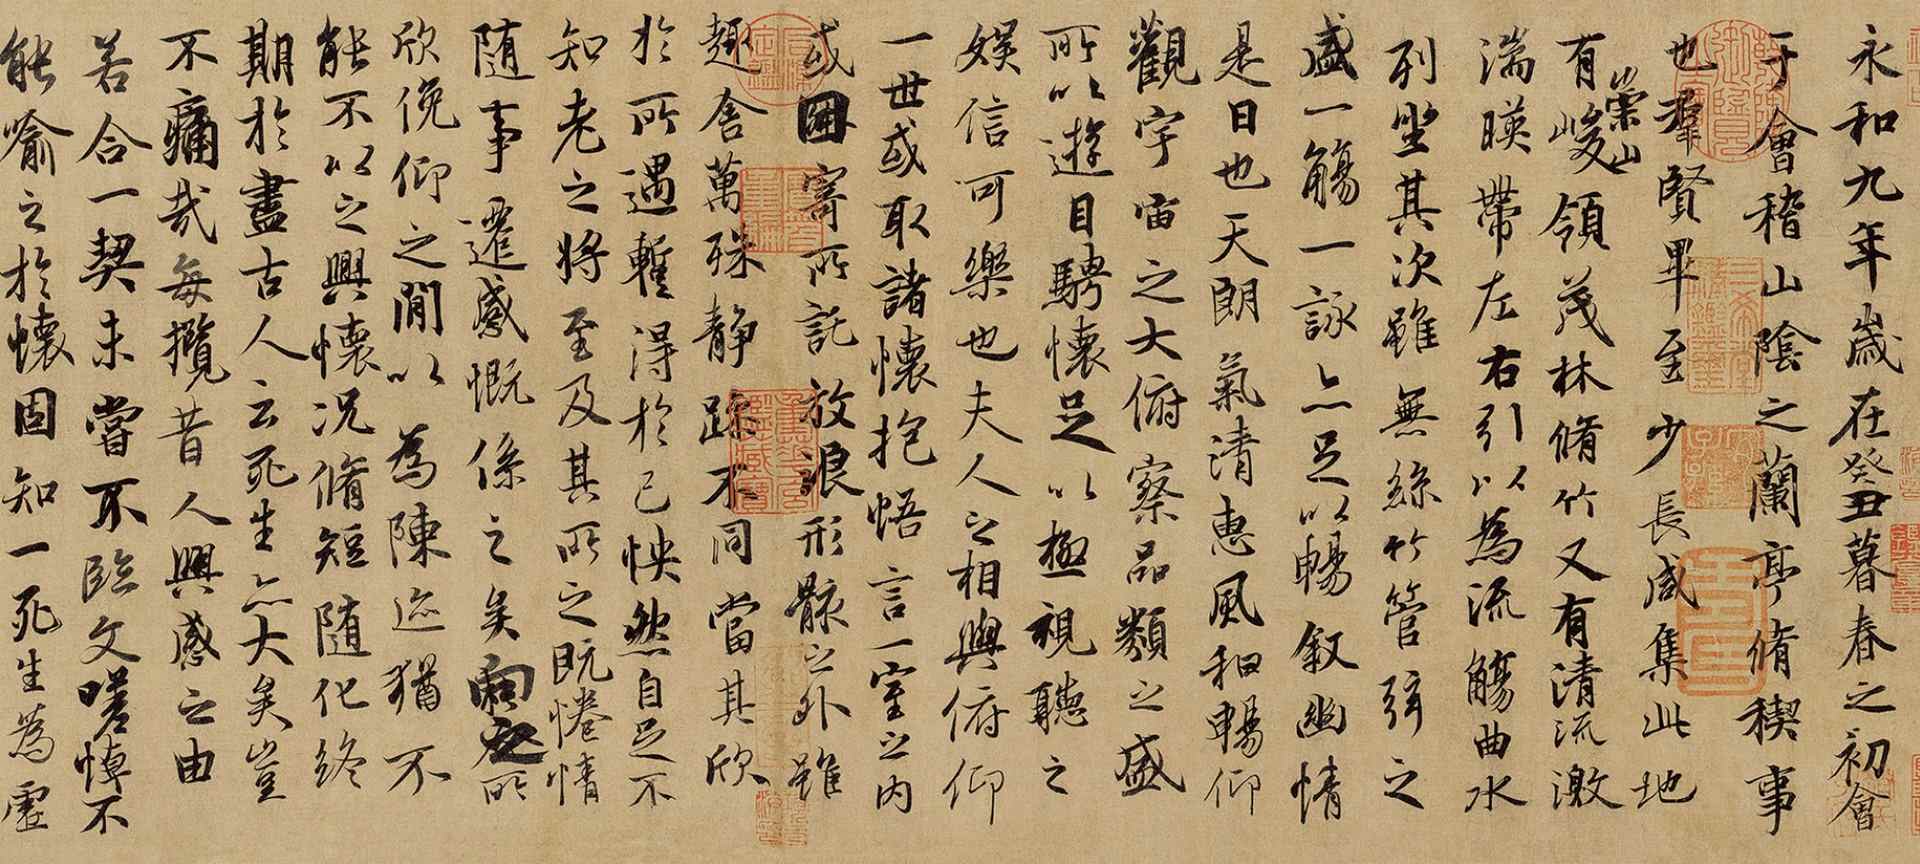 永和九年歲在癸丑暮春之初會
于會稽山陰之蘭亭脩稧事
也羣賢畢至少長咸集此地
有崇山峻領茂林脩竹又有清流激
湍暎帶左右引以為流觴曲水
列坐其次雖無絲竹管弦之
盛一觴一詠亦足以暢敘幽情
是日也天朗氣清惠風和暢仰
觀宇宙之大俯察品類之盛
所以遊目騁懷足以極視聽之
娛信可樂也夫人之相與俯仰
一世或取諸懷抱悟言一室之內
或因寄所託放浪形骸之外雖
趣舍萬殊靜躁不同當其欣
於所遇暫得於己怏然自足不
知老之將至及其所之既惓情
隨事遷感慨係之矣向之所
欣俛仰之閒以為陳迹猶不
能不以之興懷況脩短隨化終
期於盡古人云死生亦大矣豈
不痛哉每攬昔人興感之由
若合一契未嘗不臨文嗟悼不
能喻之於懷固知一死生為虛